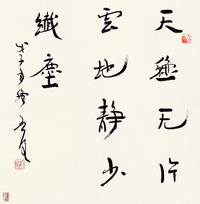 天无片
雲地静少
纖塵
戊子